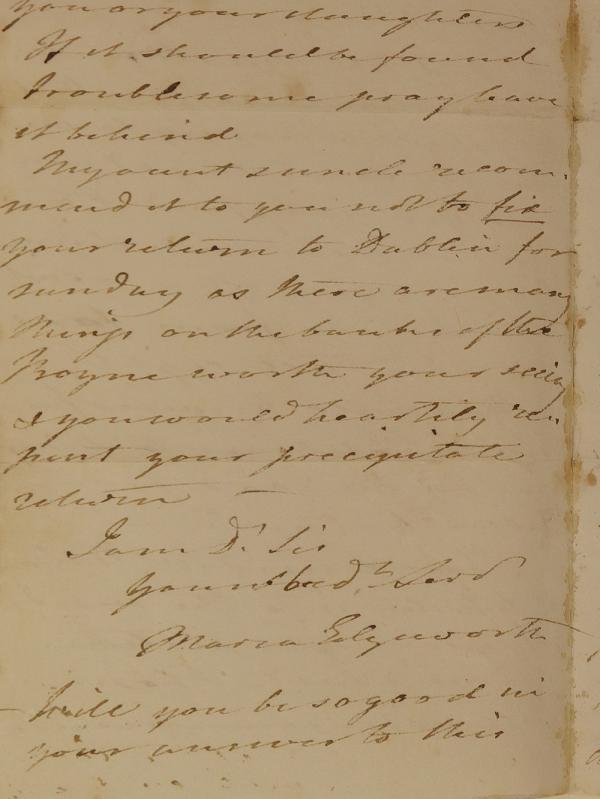 you or your daughters
If it should be found
troublesome pray leave
it behind
My aunt & uncle recom-
mend it to you not to fix
your return to Dublin for
sunday as there are many
things on the banks of the
Boyne worth your seeing
& you would heartily re-
pent your precipitate
return —
I am Dr Sir
your obedt Servt
Maria Edgeworth
— Will you be so good in
your answer to this